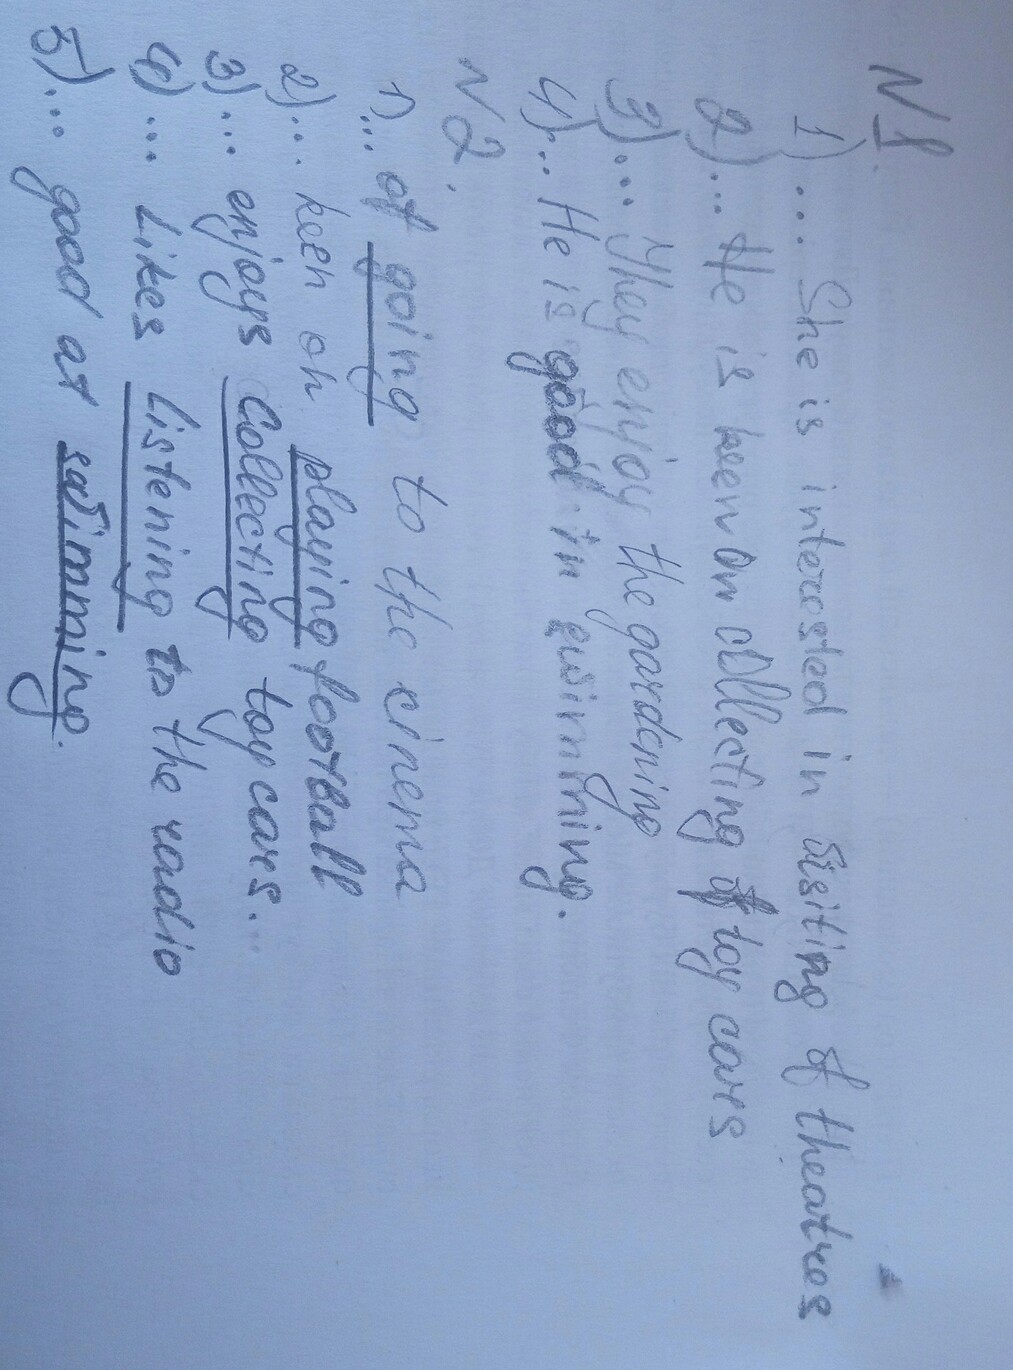 N1.
1)... She is interested in visiting of theatres
2)... He is keen on collecting of toy cars
3)... They enjoy the gardening
4)... He is good in swimming.
N2.
1)... of going to the cinema
2)... keen on playing football
3)... enjoys collecting toy cars...
4)... likes listening to the radio
5)... good at swimming.